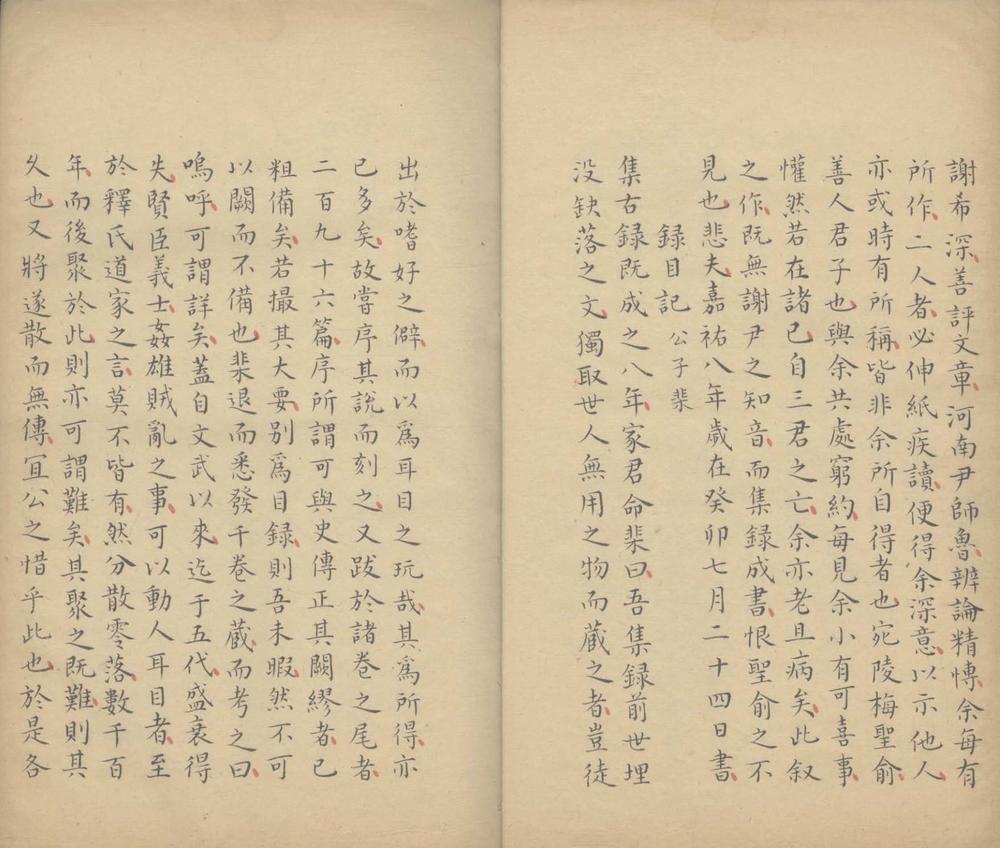 謝希深善評文章河南尹師魯辨論精博余每有
所作二人者必伸紙疾讀便得余深意以示他人
亦或時有所稱皆非余所自得者也宛陵梅聖俞
善人君子也與余共處窮約每見余小有可喜事
懽然若在諸已自三君之亡余亦老且病矣此叙
之作既無謝尹之知音而集録成書恨聖俞之不
見也悲夫嘉祐八年歲在癸卯七月二十四日書
録目記 公子棐
集古録既成之八年家君命棐曰吾集録前世埋
没缺落之文獨取世人無用之物而藏之者豈徒
出於嗜好之僻而以爲耳目之玩哉其爲所得亦
已多矣故嘗序其說而刻之又跋於諸卷之尾者
二百九十六篇序所謂可與史傳正其闕繆者已
粗備矣若撮其大要别爲目録則吾未暇然不可
以闕而不備也棐退而悉發千卷之藏而考之曰
嗚呼可謂詳矣蓋自文武以來迄于五代盛衰得
失賢臣義士姦雄賊亂之事可以動人耳目者至
於釋氏道家之言莫不皆有然分散零落數千百
年而後聚於此則亦可謂難矣其聚之既難則其
乆也又將遂散而無傳冝公之惜乎此也於是各